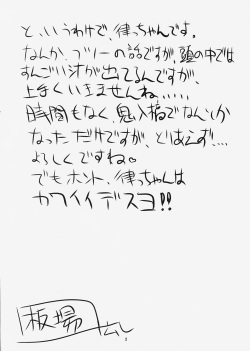 と、いうわけで、律っちゃんです。
なんか、ブルーの話ですが、頭の中では
すんごい汁が出てるんですが、
上手くいきませんね、、、、、
時間もなく、鬼入稿でなんか
なっただけですが、とりあえず、…
よろしくですね。
でもホント、律っちゃんは
カワイイデスヨ!!
板場